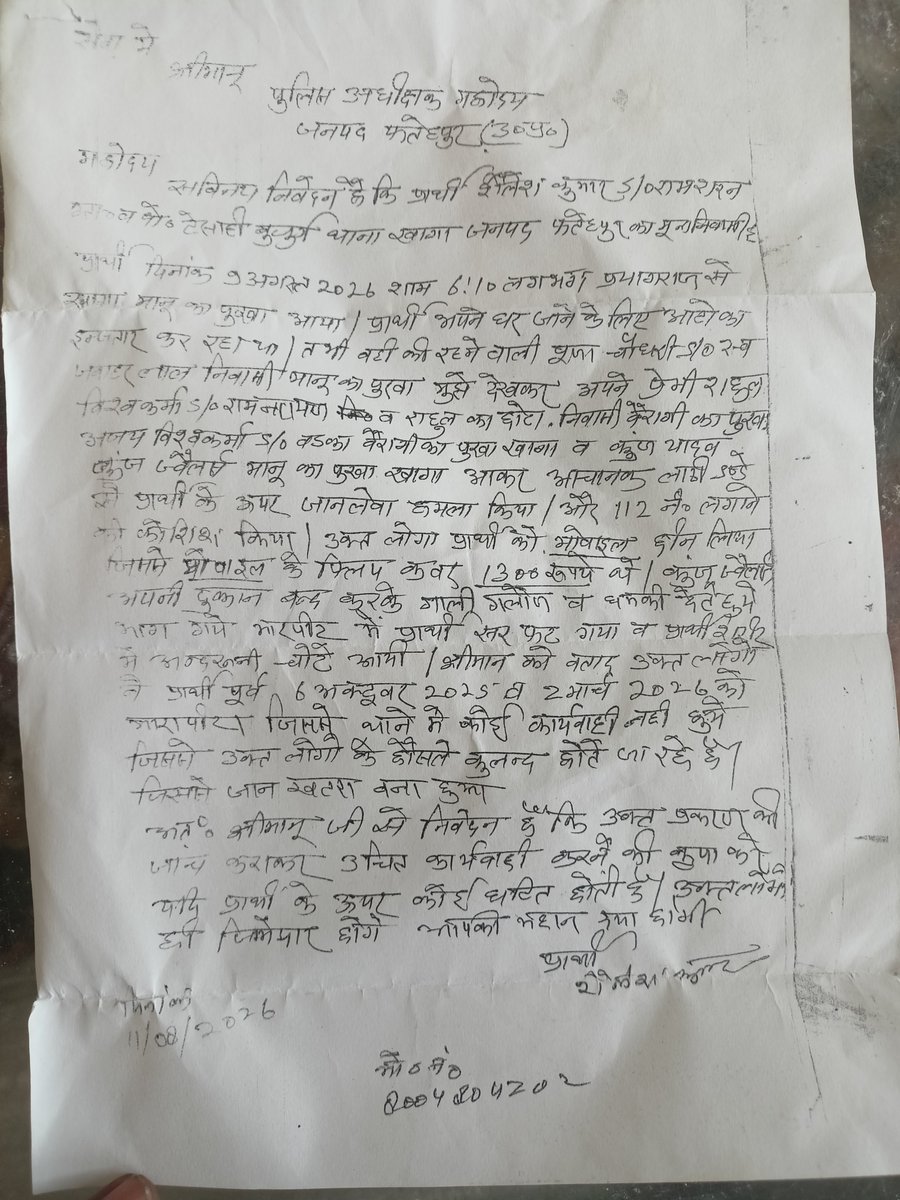 सेवा मे
श्रीमान्
पुलिस अधीक्षक महोदय
जनपद फतेहपुर (उ०प्र०)
महोदय
सविनय निवेदन है कि प्रार्थी शैलेश कुमार S/० रामशरन
टेसाही बुजुर्ग थाना खागा जनपद फतेहपुर का मूल निवासी है
प्रार्थी दिनांक 9 अगस्त 2026 शाम 6:10 लगभग प्रयागराज से
खागा भानू का पुरवा आया / प्रार्थी अपने घर जाने के लिए आटो का
इन्तजार कर रहा था / तभी वही की रहने वाली पूजा चौधरी D/० स्व
जवाहर लाल निवासी भानू का पुरवा मुझे देखकर अपने प्रेमी राहुल
विश्वकर्मा S/० रामनरायण व राहुल का छोटा. निवासी बैरागी का पुरवा
अजय विश्वकर्मा S/० बडका बैरागी का पुरवा खागा व कुंज यादव
कुंज ज्वैलर्स भानू का पुरवा खागा आकर आचानक लाठी डण्डे
से प्रार्थी के ऊपर जानलेवा हमला किया / और 112 नं० लगाने
की कोशिश किया / उक्त लोगो प्रार्थी को मोबाइल छीन लिया
जिसमे मोबाइल के फ्लिप कवर 1300 रूपये थे / कुंज ज्वैलर्स
अपनी दुकान बन्द करके गाली गलौज व धमकी देते हुये
भाग गये मारपीट में प्रार्थी सर फट गया व प्रार्थी शरीर
मे अन्दरूनी चोटे आयी / श्रीमान को बताद उक्त लोगो
ने प्रार्थी पूर्व 6 अक्टूवर 2025 व 2 मार्च 2026 को
मारापीटा जिसमे थाने मे कोई कार्यवाही नही हुये
जिससे उक्त लोगो के हौसले बुलन्द होते जा रहे है /
जिससे जान खतरा बना हुआ
अत० श्रीमान् जी से निवेदन है कि उक्त प्रकरण की
जांच कराकर उचित कार्यवाही करने की कृपा करे
यदि प्रार्थी के ऊपर कोई घटित होती है / उक्त लोगो
ही जिम्मेदार होगे आपकी महान कृपा होगी
प्रार्थी
शैलेश कुमार
दिनांक
11/08/2026
मो० नं०
8004804202